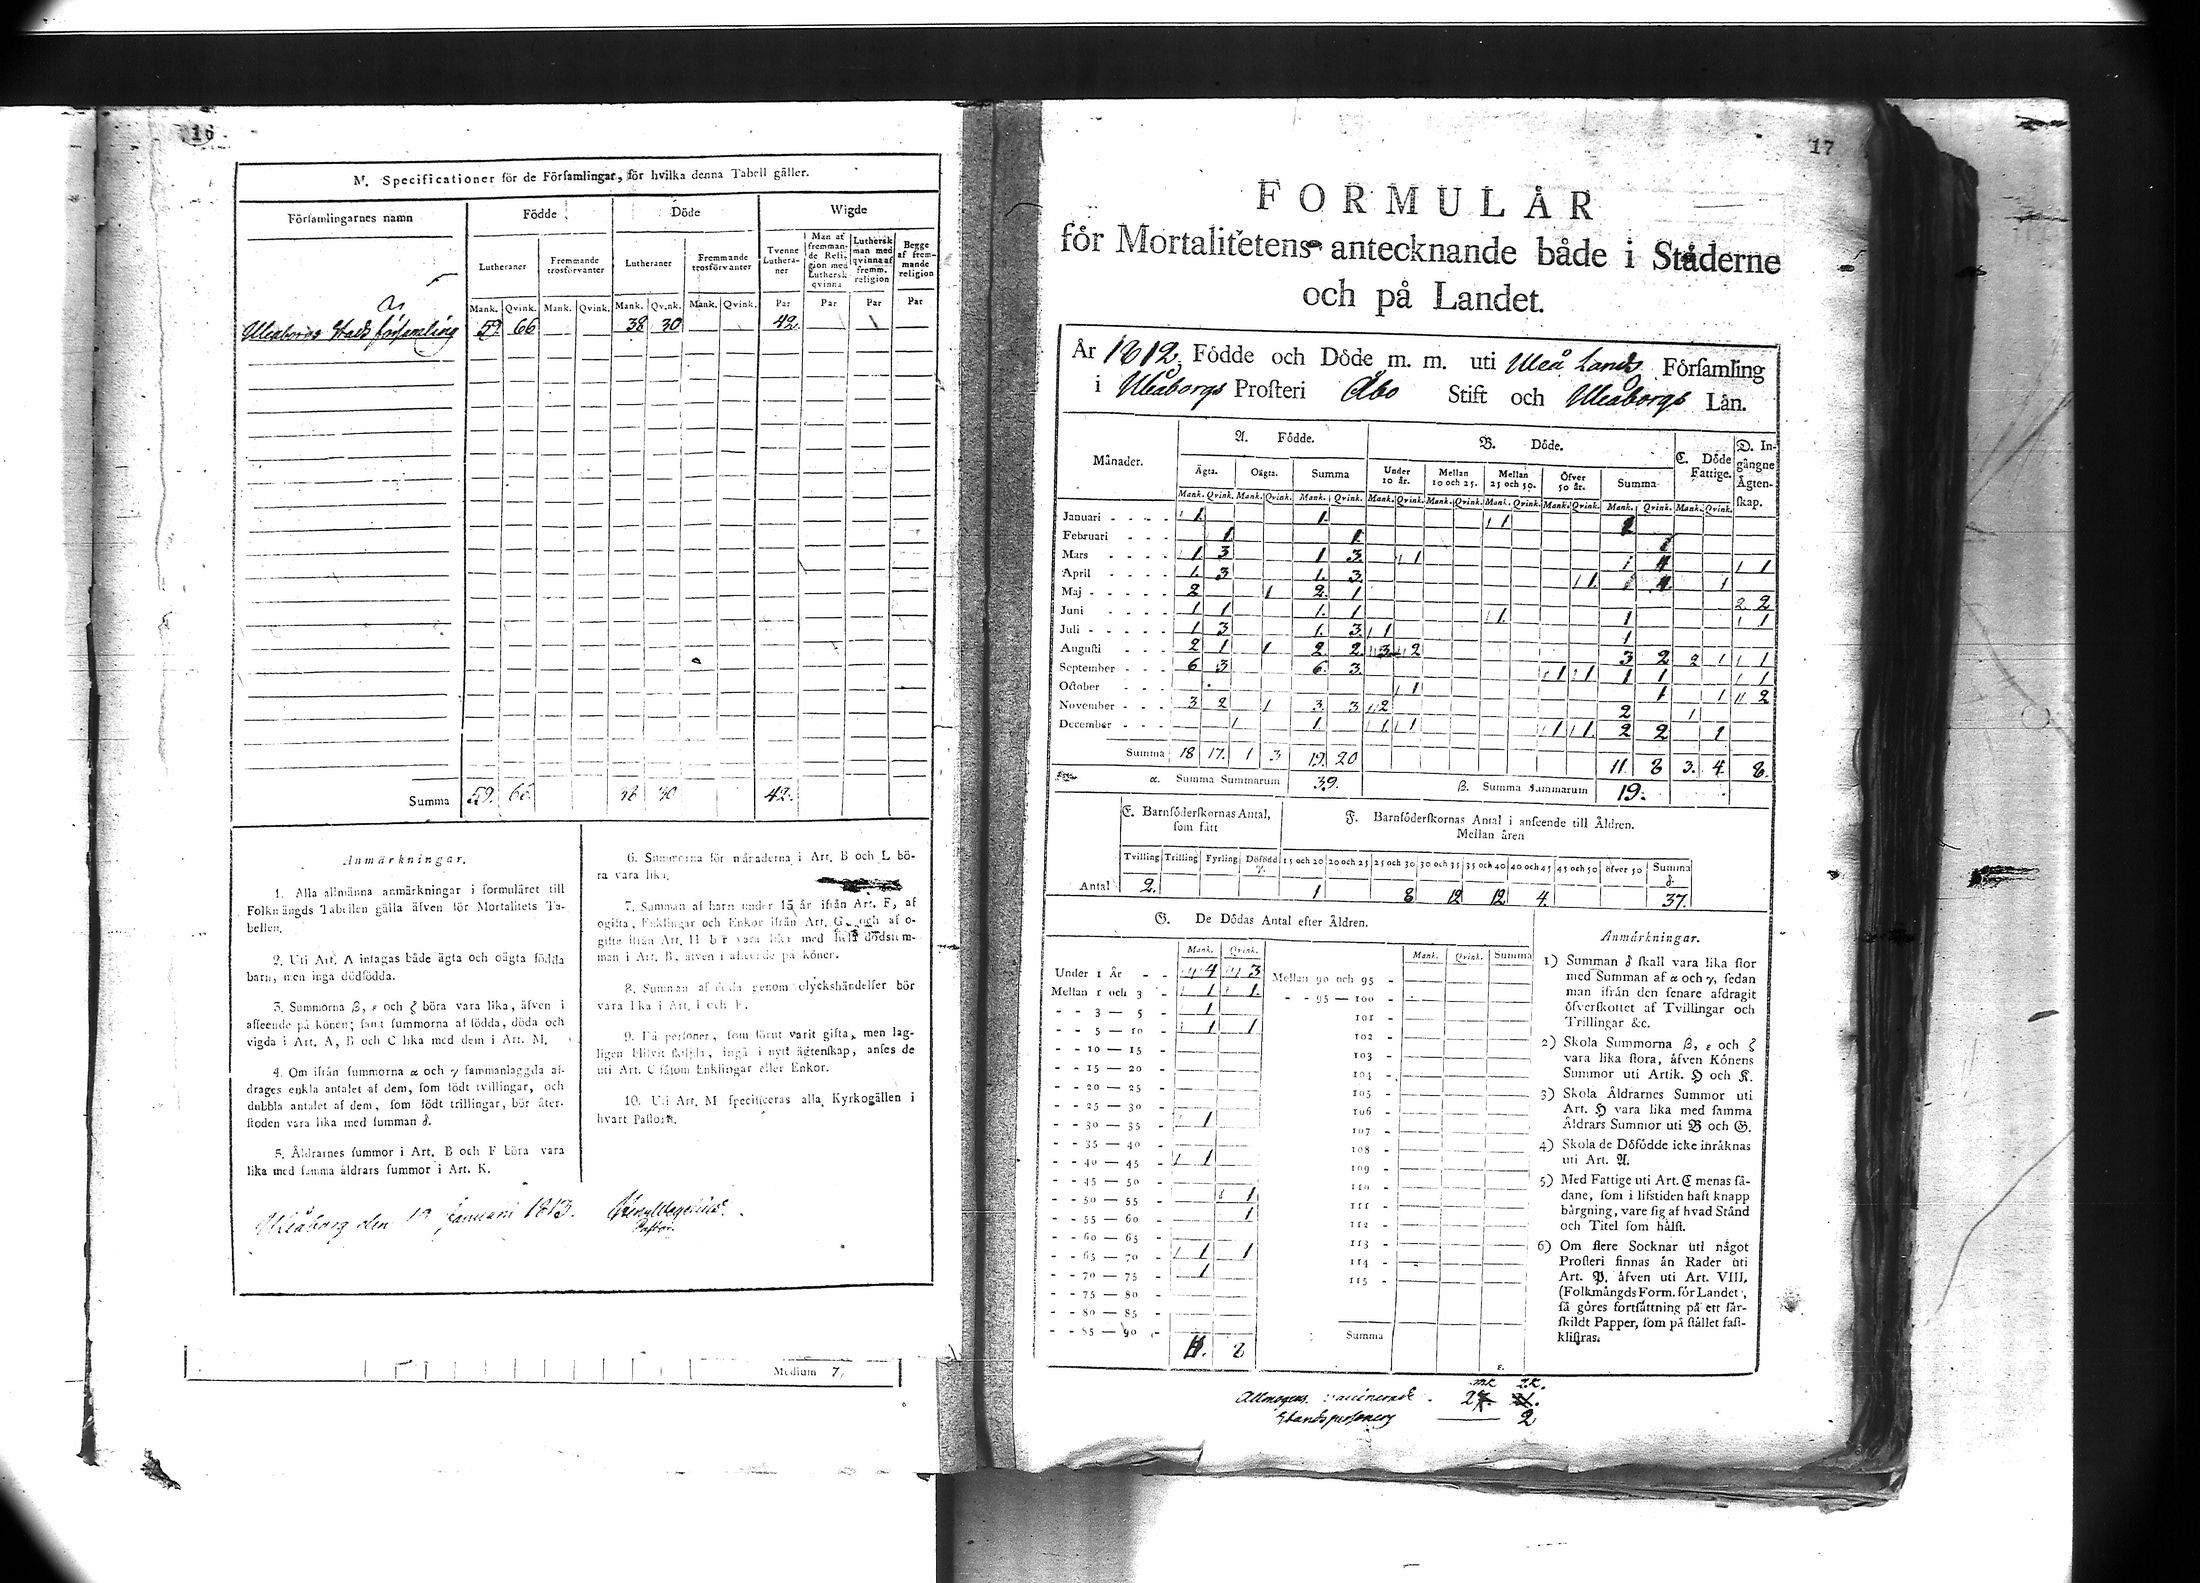 16.
M. Specificationer för de Församlingar, för hvilka denna Tabell gäller.
Församlingarnes namn
Födde
Döde
Wigde
Lutheraner
Fremmande trosförvanter
Lutheraner
Fremmande trosförvanter
Tvenne Lutheraner
Man af fremmande Religion med Luthersk qvinna
Luthersk man med qvinna af fremm. religion
Begge af fremmande religion
Mank. Qvink. Mank. Qvink. Mank. Qvink. Mank. Qvink. Par Par Par Par
Uleaborgs Stads församling 59 66 38 30 42.
Summa 59. 66. 38 30 42.
Anmärkningar.
1. Alla allmänna anmärkningar i formuläret till
Folkmängds Tabellen gälla äfven för Mortalitets Ta-
bellen.
2. Uti Art. A intagas både ägta och oägta födda
barn, men inga dödfödda.
3. Summorna β, ε och ζ böra vara lika, äfven i
afseende på könen; samt summorna af födda, döda och
vigda i Art. A, B och C lika med dem i Art. M.
4. Om ifrån summorna α och γ sammanlaggda af-
drages enkla antalet af dem, som födt tvillingar, och
dubbla antalet af dem, som födt trillingar, bör åter-
stoden vara lika med summan δ.
5. Åldrarnes summor i Art. B och F böra vara
lika med samma åldrars summor i Art. K.
6. Summorna för månaderna i Art. B och L bö-
ra vara lika.
7. Summan af barn under 15 år ifrån Art. F, af
ogifta, Enklingar och Enkor ifrån Art. G och af o-
gifte ifrån Art. H bör vara lika med hela dödssum-
man i Art. B, äfven i afseende på könen.
8. Summan af döda genom olyckshändelser bör
vara lika i Art. I och K.
9. Få personer, som förut varit gifta, men lag-
ligen blifvit skiljda, ingå i nytt ägtenskap, anses de
uti Art. C såsom Enklingar eller Enkor.
10. Uti Art. M specificeras alla Kyrkogällen i
hvart Pastorat.
Uleåborg den Januari 1813.
Pastor.
Medium 7.
17
FORMULÅR
för Mortalitetens antecknande både i Ståderne
och på Landet.
År 1812, Födde och Döde m. m. uti Uleå Lands Församling
i Uleåborgs Prosteri Åbo Stift och Uleåborgs Lån.
Månader.
A. Födde.
B. Döde.
C. Döde Fattige.
D. Ingångne Ågtenskap.
Ägta. Oägta. Summa Under 10 år. Mellan 10 och 25. Mellan 25 och 50. Öfver 50 år. Summa
Mank. Qvink. Mank. Qvink. Mank. Qvink. Mank. Qvink. Mank. Qvink. Mank. Qvink. Mank. Qvink. Mank. Qvink. Mank. Qvink.
Januari 1. 1. 1
Februari 1 1.
Mars 1 3 1 3. 1 1
April 1. 3 1. 3 1 1
Maj 2 1 2. 1 2
Juni 1 1 1. 1 1 1 1
Juli 1 3 1. 3 1 1
Augusti 2 1 1 2 2 3 2 3 2 2 1 1
September 6 3 6. 3 1 1 1 1 1
October 1 1 1 2
November 3 2 1 3 3 2 2 1
December 1 1. 1 1 1 1 2 2 1
Summa 18 17. 1 3 19. 20 11. 8 3. 4. 8.
α. Summa Summarum 39. β. Summa Summarum 19.
E. Barnföderskornas Antal, som fått
F. Barnföderskornas Antal i anseende till Åldren.
Mellan åren
Tvilling Trilling Fyrling Döfödd γ. 15 och 20 20 och 25 25 och 30 30 och 35 35 och 40 40 och 45 45 och 50 öfver 50 Summa δ.
Antal 2. 1 8 12 12 4. 37.
G. De Dödas Antal efter Åldren.
Mank. Qvink. Mank. Qvink. Summa
Under 1 År 4 3
Mellan 1 och 3 1 1.
3 — 5 1
5 — 10 1 1
10 — 15
15 — 20
20 — 25
25 — 30
30 — 35 1
35 — 40
40 — 45 1
45 — 50
50 — 55 1
55 — 60 1
60 — 65
65 — 70 1 1
70 — 75 1
75 — 80
80 — 85
85 — 90
11. 8
Mellan 90 och 95
95 — 100
101
102
103
104
105
106
107
108
109
110
111
112
113
114
115
Summa
ε.
Anmärkningar.
1) Summan δ skall vara lika stor
med Summan af α och γ, sedan
man ifrån den senare afdragit
öfverskottet af Tvillingar och
Trillingar &c.
2) Skola Summorna β, ε och ζ
vara lika stora, åfven Könens
Summor uti Artik. H och K.
3) Skola Åldrarnes Summor uti
Art. H vara lika med samma
Åldrars Summor uti B och G.
4) Skola de Döfödde icke inråknas
uti Art. A.
5) Med Fattige uti Art. C menas så-
dane, som i lifstiden haft knapp
bårgning, vare sig af hvad Stånd
och Titel som hålst.
6) Om flere Socknar uti något
Prosteri finnas ån Rader uti
Art. P, åfven uti Art. VIII,
(Folkmångds Form. för Landet),
så göres fortsåttning på ett sår-
skildt Papper, som på stållet fast-
klistras.
mk 2k.
Allmogens vaccinerade
Ståndspersoner 2